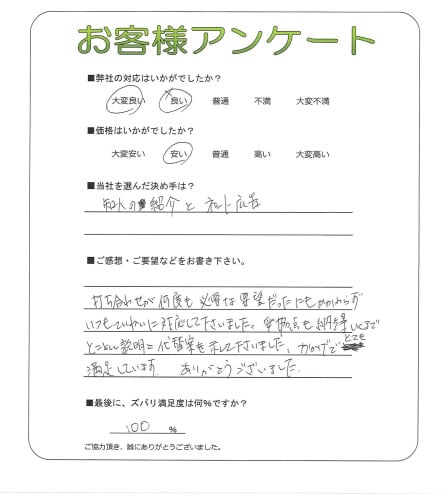 お客様アンケート
■弊社の対応はいかがでしたか？
大変良い 良い 普通 不満 大変不満
■価格はいかがでしたか？
大変安い 安い 普通 高い 大変高い
■当社を選んだ決め手は？
知人の紹介と ネット広告
■ご感想・ご要望などをお書き下さい。
打ち合わせが何度も必要な要望だったにもかかわらず
いつもていねいに対応して下さいました。妥協点も納得いくまで
とことん説明と代替案を示して下さいました。おかげで とても
満足しています。ありがとうございました。
■最後に、ズバリ満足度は何%ですか？
100 %
ご協力頂き、誠にありがとうございました。